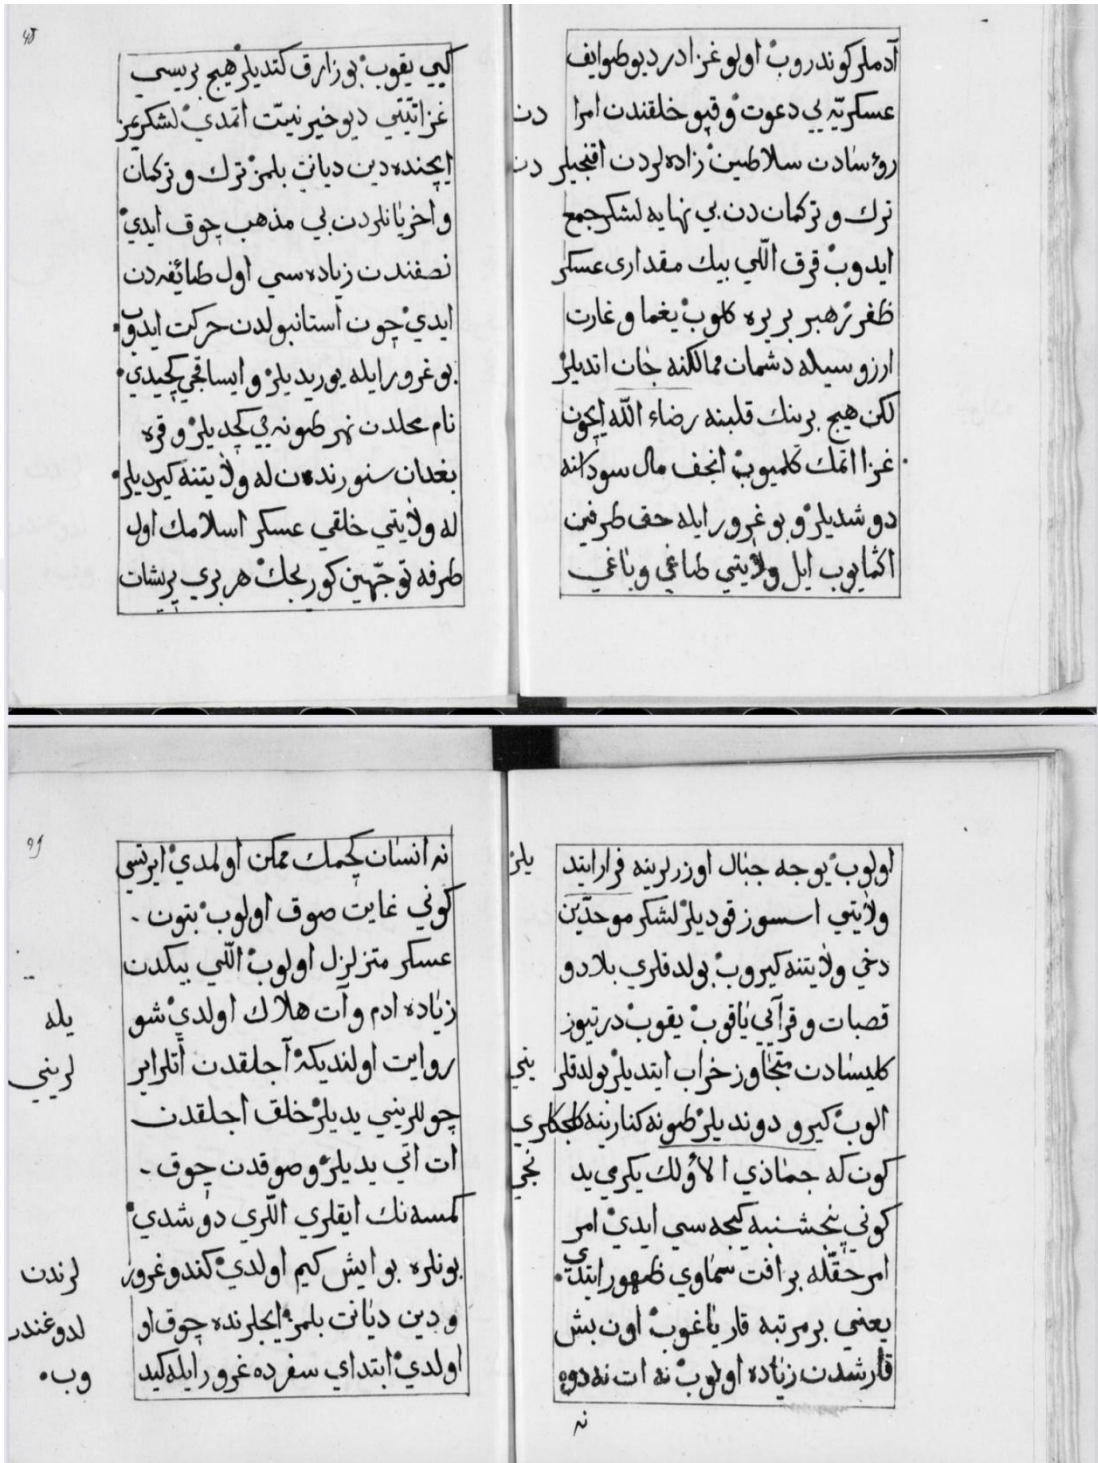 آدملر كوندروب اولو غزا در ديو طوايف
عسكريّه يي دعوت و قپو خلقندن امرا دن
رؤسادن سلاطين زاده لردن اقنجيلر دن
ترك و تركمان دن بي نهايه لشكر جمع
ايدوب قرق اللّي بيك مقدارى عسكر
ظفر رهبر بر يره كلوب يغما و غارت
ارزوسيله دشمان ممالكنه جان اتديلر
لكن هيچ برينك قلبنه رضاء الله ايچون
غزا اتمك كلميوب انجق مال سوداسنه
دوشديلر و بو غرور ايله حق طرفين
اكمايوب ايل ولايتي طاغي و باغي
45
كبي يقوب بوزارق كتديلر هيچ بريسي
غزا نيّتي ديو خير نيت اتمدي لشكريمز
ايچنده دين ديانت بلمز ترك و تركمان
و اخريانلردن بي مذهب چوق ايدي
نصفندن زياده سي اول طائفه دن
ايدي چون استانبولدن حركت ايدوب
بو غرور ايله يوريديلر و ايساقجي كچيدي
نام محلدن نهر طونه يي كچديلر و قره
بغدان سنورندن له ولايتنه كيرديلر
له ولايتي خلقي عسكر اسلامك اول
طرفه توجهين كوريجك هر بري پريشان
اولوب يوجه جبال اوزرلرينه فرار ايتد يلر
ولايتي اسسوز قوديلر لشكر موحدين
دخي ولايتنه كيروب بولدقلري بلاد و
قصبات و قرآيي ياقوب يقوب درتيوز
كليسادن متجاوز خراب ايتديلر بولدقلر يني
الوب كيرو دونديلر طونه كنارينه كلجكلري
كون كه جماذي الأولك يكرمي يد نجي
كوني پنجشنبه كيجه سي ايدي امر
امر حقله بر افت سماوي ظهور ايتدي
يعني بر مرتبه قار ياغوب اون بش
قارشدن زياده اولوب نه ات نه دوه
نه
نه انسان كچمك ممكن اولمدي ايرتسي
كوني غايت صوق اولوب بتون
عسكر متزلزل اولوب اللّي بيكدن
زياده ادم و آت هلاك اولدي شو يله
روايت اولنديكه آجلقدن آتلر اير لريني
چوللريني يديلر خلق اجلقدن
ات اتي يديلر و صوقدن چوق
كمسه نك ايقلري اللري دوشدي
بونلره بو ايش كيم اولدي كندو غرور لرندن
و دين ديانت بلمز ايچلرنده چوق او لدوغندن
اولدي ابتداي سفرده غرور ايله كيد وب